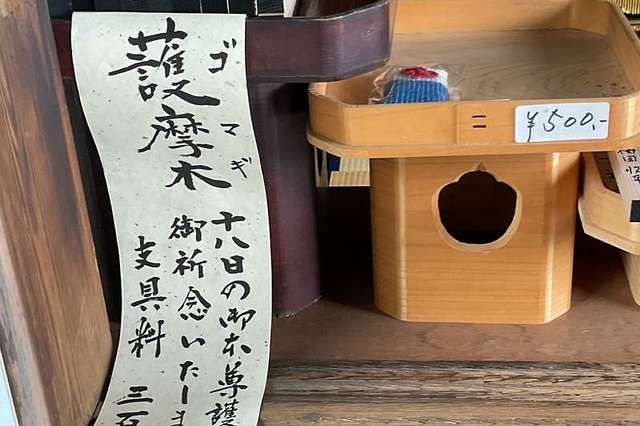 護摩木
ゴマギ
十八日の御本尊護
御祈念いたしま
支具料
三百
¥500,-